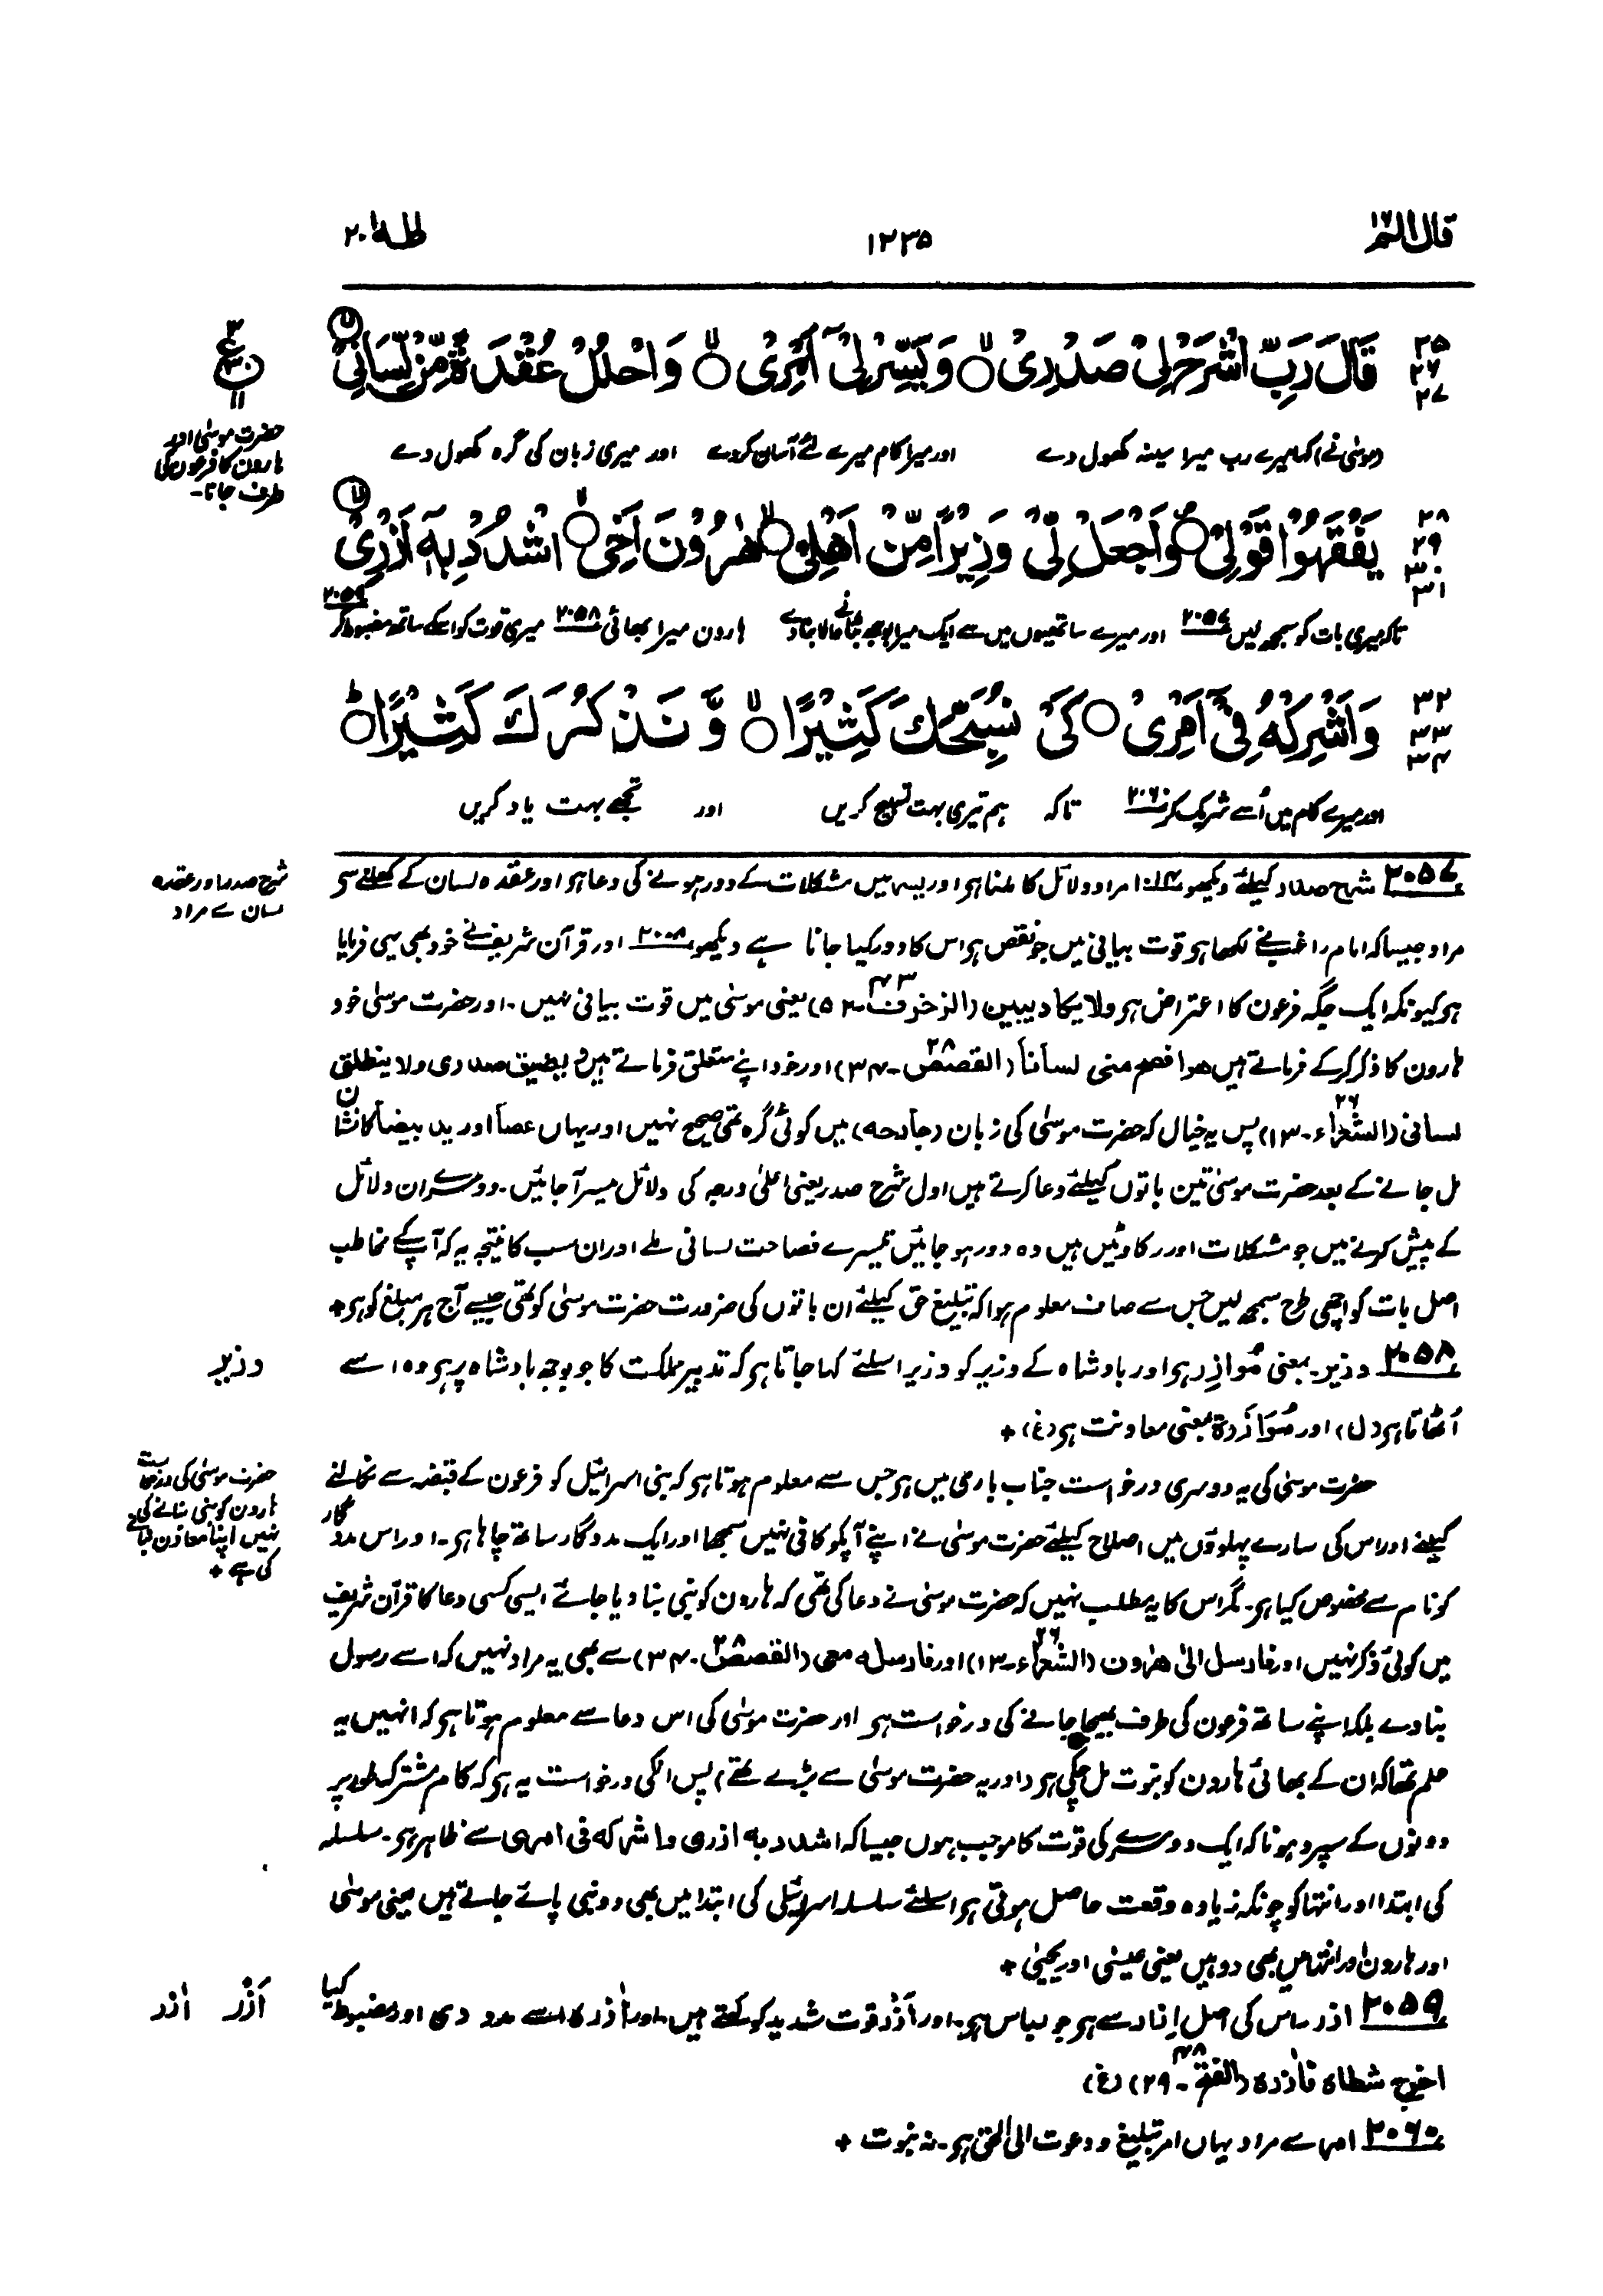 قال الم ١٦
١٢٣٥
طٰهٰ ٢٠
٢٥ ٢٦ ٢٧
قَالَ رَبِّ اشْرَحْ لِیْ صَدْرِیْ ۙ وَیَسِّرْ لِیْۤ اَمْرِیْ ۙ وَاحْلُلْ عُقْدَةً مِّنْ لِّسَانِیْ ۙ
(موسٰی نے) کہا میرے رب میرا سینہ کھول دے اور میرا کام میرے لئے آسان کردے اور میری زبان کی گرہ کھول دے
حضرت موسٰی اور
ہارون کا فرعون کی
طرف جانا۔
٢٨ ٢٩ ٣٠ ٣١
یَفْقَهُوْا قَوْلِیْ ۪ وَاجْعَلْ لِّیْ وَزِیْرًا مِّنْ اَهْلِیْ ۙ هٰرُوْنَ اَخِی ۙ اشْدُدْ بِهٖۤ اَزْرِیْ ۙ
تاکہ میری بات کو سمجھ لیں ٢٠٥٧ اور میرے ساتھیوں میں سے ایک میرا بوجھ بٹانے والا بنا دے ہارون میرا بھائی ٢٠٥٨ میری قوت کو اسکے ساتھ مضبوط کر ٢٠٥٩
٣٢ ٣٣ ٣٤
وَاَشْرِكْهُ فِیْۤ اَمْرِیْ ۙ كَیْ نُسَبِّحَكَ كَثِیْرًا ۙ وَّنَذْكُرَكَ كَثِیْرًا ؕ
اور میرے کام میں اُسے شریک کر ٢٠٦٠ تاکہ ہم تیری بہت تسبیح کریں اور تجھے بہت یاد کریں
شرح صدر اور عقدہ
لسان سے مراد
٢٠٥٧ شرح صدر کیلئے دیکھو مراد دلائل کا ملنا ہو اور یسر میں مشکلات کے دور ہونے کی دعا ہو اور عقدہ لسان کے کھلنے سے
مراد جیسا کہ امام راغب نے لکھا ہو قوت بیانی میں جو نقص ہو اس کا دور کیا جانا ہے دیکھو ٢٠٠٨ اور قرآن شریف نے خود بھی یہی فرمایا
ہو کیونکہ ایک جگہ فرعون کا اعتراض ہو ولا یکاد یبین (الزخرف ٤٣۔ ٥٢) یعنی موسٰی میں قوت بیانی نہیں۔ اور حضرت موسٰی خود
ہارون کا ذکر کرکے فرماتے ہیں هو افصح منی لسانا (القصص ٢٨۔ ٣٤) اور خود اپنے متعلق فرماتے ہیں و یضیق صدری ولا ینطلق
لسانی (الشعراء ٢٦۔ ١٣) پس یہ خیال کہ حضرت موسٰی کی زبان (جارحہ) میں کوئی گرہ تھی صحیح نہیں اور یہاں عصا اور ید بیضا کا نشان
مل جانے کے بعد حضرت موسٰی تین باتوں کیلئے دعا کرتے ہیں اول شرح صدر یعنی اعلٰی درجہ کی دلائل میسر آجائیں۔ دوسرے ان دلائل
کے پیش کرنے میں جو مشکلات اور رکاوٹیں ہیں وہ دور ہو جائیں تیسرے فصاحت لسانی ملے اور ان سب کا نتیجہ یہ کہ آپ کے مخاطب
اصل بات کو اچھی طرح سمجھ لیں جس سے صاف معلوم ہوا کہ تبلیغ حق کیلئے ان باتوں کی ضرورت حضرت موسٰی کو تھی جیسے آج ہر مبلغ کو ہو +
وزیر
٢٠٥٨ وزیر۔ بمعنی مُوازِر ہو اور بادشاہ کے وزیر کو وزیر اسلئے کہا جاتا ہو کہ تدبیر مملکت کا جو بوجھ بادشاہ پر ہو وہ اسے
اُٹھاتا ہو (ل) اور مُوَازَرَة بمعنی معاونت ہو (غ) +
حضرت موسٰی کی درخواست
ہارون کو نبی بنانے کی
نہیں اپنا معاون بنانے
کی ہے +
حضرت موسٰی کی یہ دوسری درخواست جناب باری میں ہو جس سے معلوم ہوتا ہو کہ بنی اسرائیل کو فرعون کے قبضہ سے نکالنے
کیلئے اور اس کی سارے پہلوؤں میں اصلاح کیلئے حضرت موسٰی نے اپنے آپکو کافی نہیں سمجھا اور ایک مددگار ساتھ چاہا ہو۔ اور اس مددگار
کو نام سے مخصوص کیا ہو۔ مگر اس کا یہ مطلب نہیں کہ حضرت موسٰی نے دعا کی تھی کہ ہارون کو نبی بنا دیا جائے ایسی کسی دعا کا قرآن شریف
میں کوئی ذکر نہیں اور فارسل الی هرون (الشعراء ٢٦۔ ١٣) اور فارسله معی (القصص ٢٨۔ ٣٤) سے بھی یہ مراد نہیں کہ اسے رسول
بنا دے بلکہ اپنے ساتھ فرعون کی طرف بھیجا جانے کی درخواست ہو اور حضرت موسٰی کی اس دعا سے معلوم ہوتا ہو کہ انہیں یہ
علم تھا کہ ان کے بھائی ہارون کو نبوت مل چکی ہو (اور یہ حضرت موسٰی سے بڑے تھے) پس انکی درخواست یہ ہو کہ کام مشترک طور پر
دونوں کے سپرد ہو تاکہ ایک دوسرے کی قوت کا موجب ہوں جیسا کہ اشدد به ازری واشرکه فی امری سے ظاہر ہو۔ سلسلہ
کی ابتدا اور انتہا کو چونکہ زیادہ وقعت حاصل ہوتی ہو اسلئے سلسلہ اسرائیلی کی ابتدا میں بھی دو نبی پائے جاتے ہیں یعنی موسٰی
اور ہارون اور انتہا میں بھی دو ہیں یعنی عیسٰی اور یحیٰی +
اَزْر اٰزر
٢٠٥٩ ازر۔ اس کی اصل اِزار سے ہو جو لباس ہو۔ اور اَزْر قوت شدید کو کہتے ہیں۔ اور اٰزرہ اسے مدد دی اور مضبوط کیا
اخرج شطاه فاٰزره (الفتح ٤٨۔ ٢٩) (غ)
٢٠٦٠ امر سے مراد یہاں امر تبلیغ و دعوت الی الحق ہو۔ نہ نبوت +